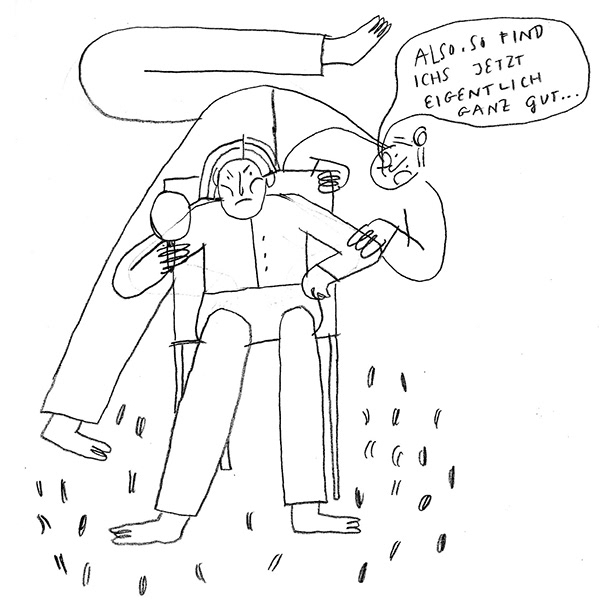 ALSO, SO FIND
ICHS JETZT
EIGENTLICH
GANZ GUT...